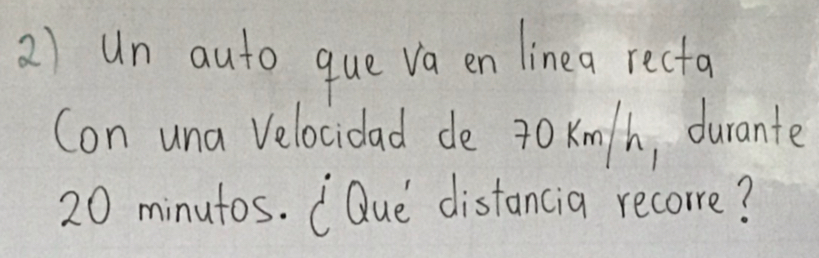 2) Un auto que va en linea recta
Con una Velocidad de 70 Km/h, durante
20 minutos. ¿Qué distancia recorre?